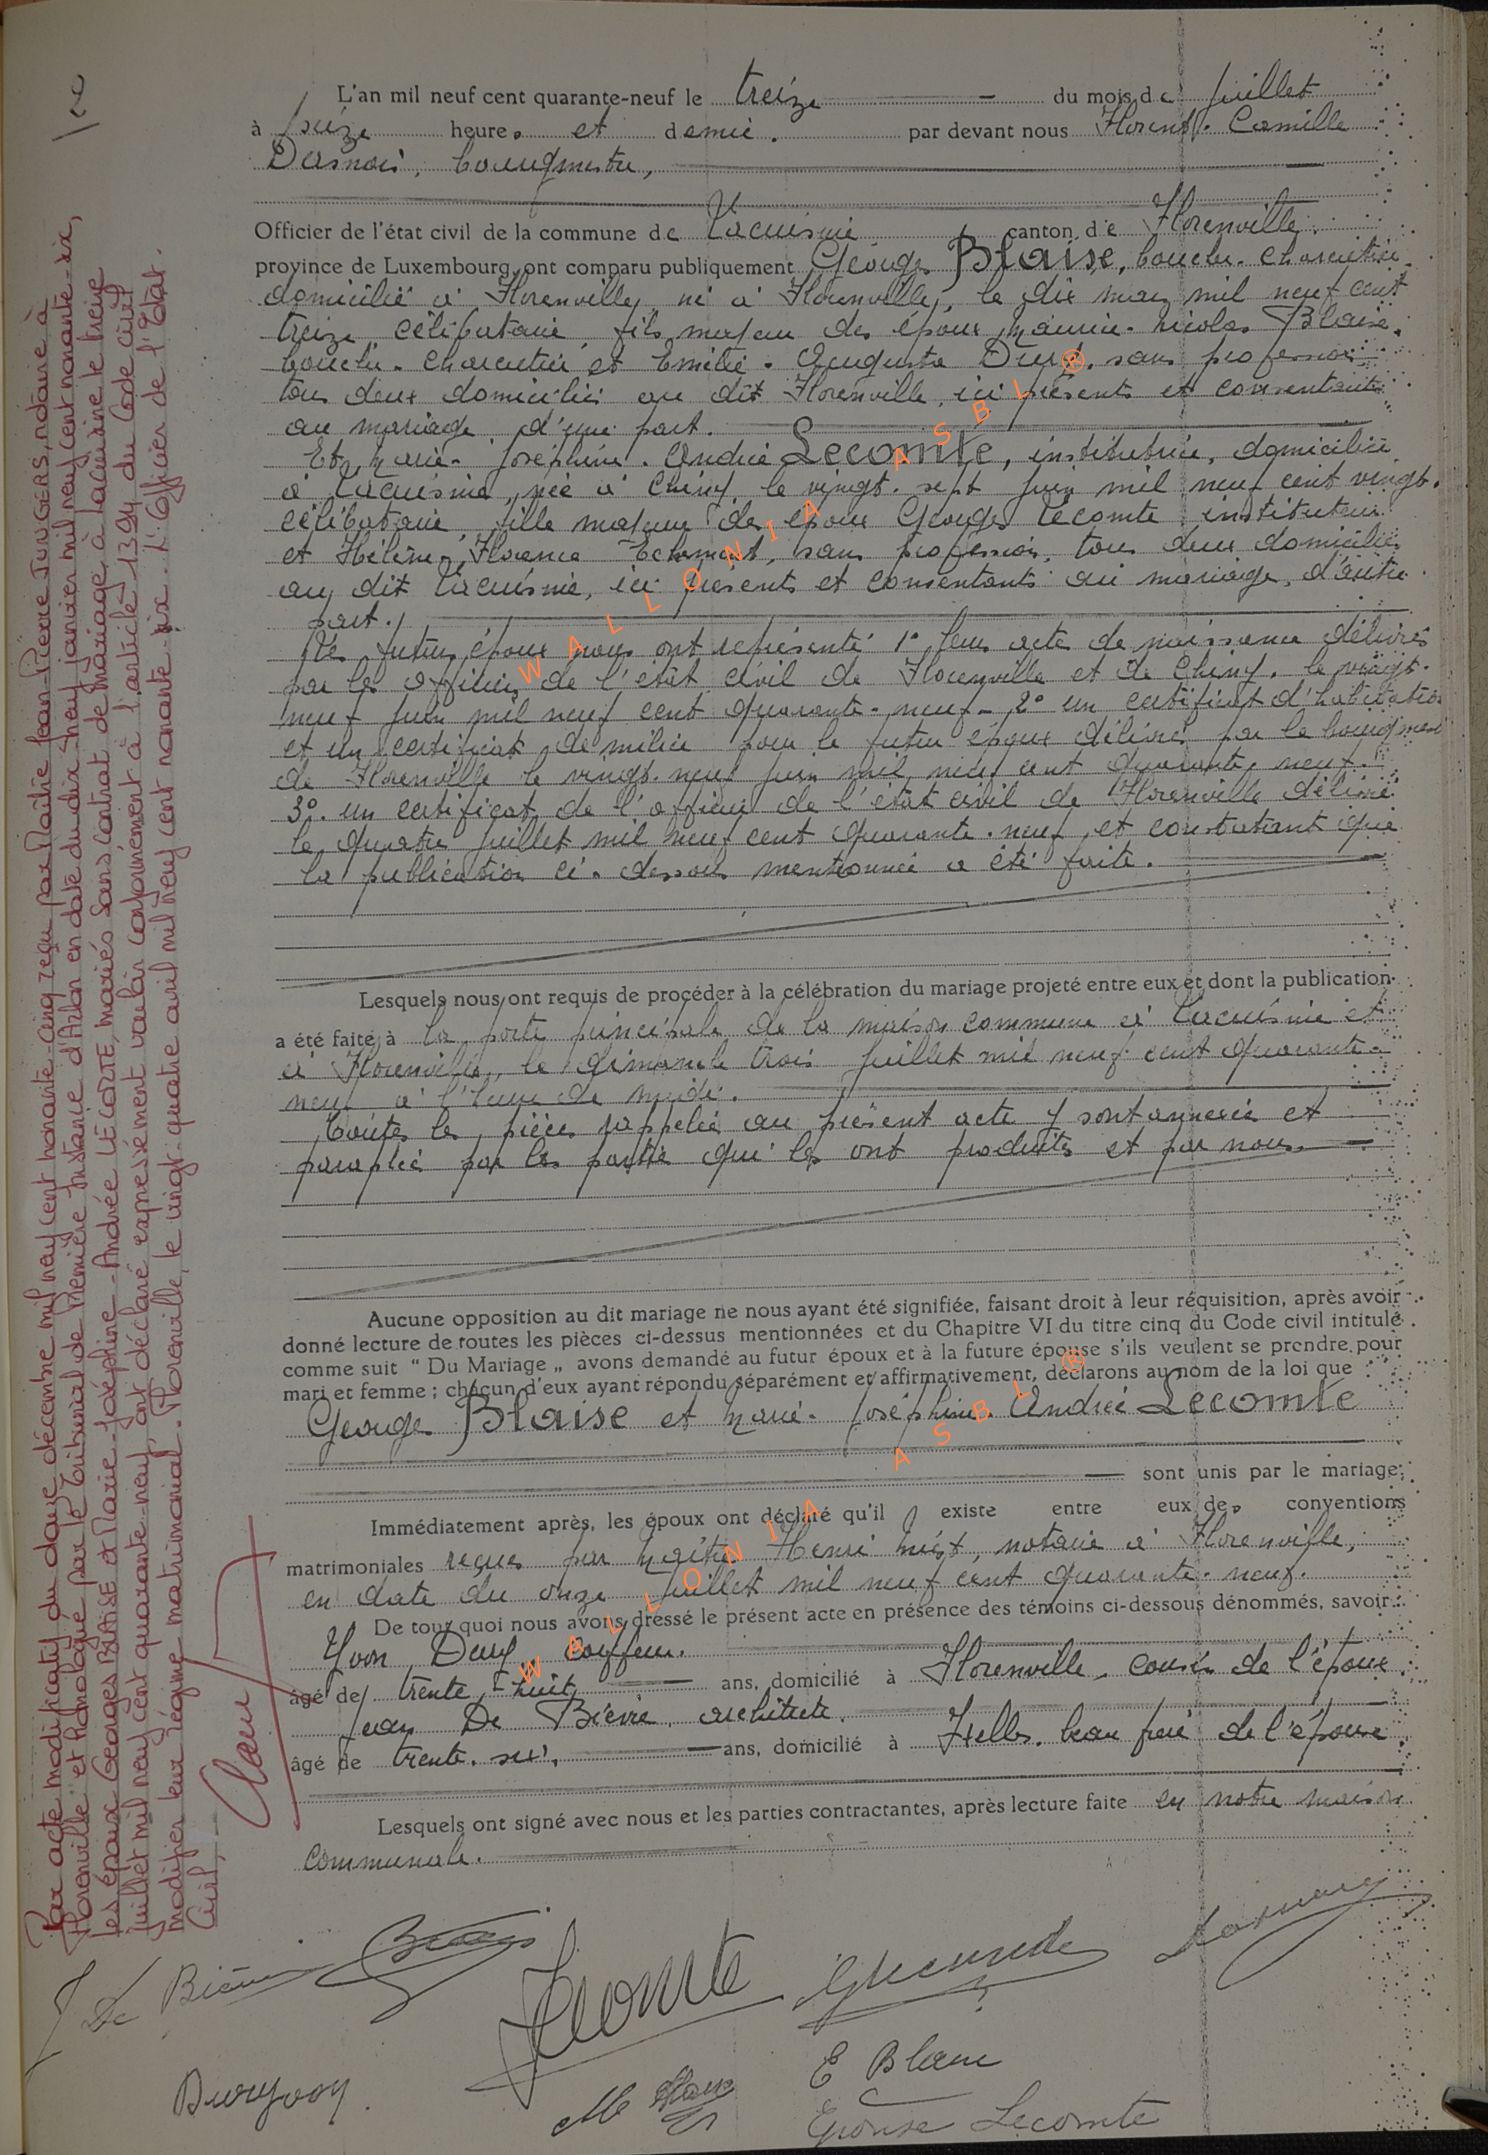 L'an mil neuf cent quarante-neuf le treize du mois de juillet
à seize heures et demie. par devant nous Florent. Camille
Dasnois, bourgmestre,
Officier de l'état civil de la commune de Lacuisine canton de Florenville.
province de Luxembourg, ont comparu publiquement Georges Blaise, boucher. charcutier.
domicilié à Florenville, né à Florenville, le dix mars mil neuf cent
treize, célibataire, fils majeur des époux Maurice. Nicolas Blaise,
boucher. charcutier et Emilie. Augusta Dury, sans profession
tous deux domiciliés au dit Florenville, ici présents et consentants
au mariage, d'une part.
Et Marie. Joséphine. Andrée Lecomte, institutrice, domiciliée
à Lacuisine, née à Chiny, le vingt. sept juin mil neuf cent vingt.
célibataire, fille majeure des époux Georges Lecomte, instituteur
et Hélène. Florence sans profession, tous deux domiciliés
au dit Lacuisine, ici présents et consentants au mariage, d'autre
part.
Les futurs époux nous ont représenté 1° leurs actes de naissance délivrés
par les officiers de l'état civil de Florenville et de Chiny. le vingt.
neuf juin mil neuf cent quarante-neuf- 2° un certificat d'habitation
et un certificat de milice pour le futur époux délivré par le bourgmestre
de Florenville le vingt. neuf juin mil neuf cent quarante. neuf.
3°. un certificat de l'officier de l'état civil de Florenville délivré
le quatre juillet mil neuf cent quarante. neuf et constatant que
la publication ci. dessous mentionnée a été faite.
Lesquels nous ont requis de procéder à la célébration du mariage projeté entre eux et dont la publication
a été faite à la porte principale de la maison commune à Lacuisine et
à Florenville, le dimanche trois juillet mil neuf cent quarante-
neuf à l'heure de midi.
Toutes les pièces rappelées au présent acte y sont annexées et
paraphées par les parties qui les ont produites et par nous.
Aucune opposition au dit mariage ne nous ayant été signifiée, faisant droit à leur réquisition, après avoir
donné lecture de toutes les pièces ci-dessus mentionnées et du Chapitre VI du titre cinq du Code civil intitulé
comme suit " Du Mariage „ avons demandé au futur époux et à la future épouse s'ils veulent se prendre pour
mari et femme ; chacun d'eux ayant répondu séparément et affirmativement, déclarons au nom de la loi que
Georges Blaise et Marie. Joséphine. Andrée Lecomte
sont unis par le mariage.
Immédiatement après, les époux ont déclaré qu'il existe entre eux des conventions
matrimoniales reçues par Maître Henri notaire à Florenville,
en date du onze juillet mil neuf cent quarante. neuf.
De tout quoi nous avons dressé le présent acte en présence des témoins ci-dessous dénommés, savoir :
Yvon Dury, coiffeur.
âgé de trente-huit ans, domicilié à Florenville, cousin de l'époux.
Jean De Bièvre, architecte.
âgé de trente. six, ans, domicilié à Ixelles. beau frère de l'épouse
Lesquels ont signé avec nous et les parties contractantes, après lecture faite en notre maison
communale.
J De Bièvre
Lecomte
Dury Yvon
E Blaise
Epouse Lecomte
Par acte modificatif du douze décembre mil neuf cent nonante-cinq reçu par Maître Jean-Pierre JUNGERS, notaire à
Florenville et homologué par le Tribunal de Première Instance d'Arlon en date du dix-neuf janvier mil neuf cent nonante-six,
les époux Georges BLAISE et Marie-Joséphine-Andrée LECOMTE, mariés sans contrat de mariage, à Lacuisine le treize
juillet mil neuf cent quarante-neuf, ont déclaré expressément vouloir conformément à l'article 1394 du Code civil
modifier leur régime matrimonial. Florenville, le vingt-quatre avril mil neuf cent nonante-six. L'Officier de l'Etat
Civil,
WALLONIA ASBL ®
WALLONIA ASBL ®